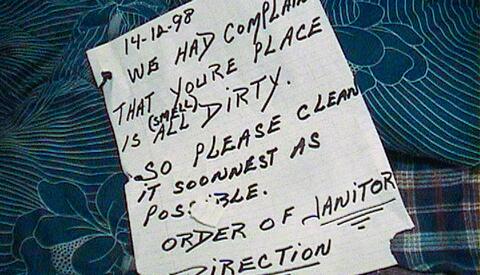 14-12-98
WE HAD COMPLAIN
THAT YOURE PLACE
(SMELL)
IS ALL DIRTY.
SO PLEASE CLEAN
IT SOONNEST AS
POSSIBLE.
ORDER OF JANITOR
DIRECTION